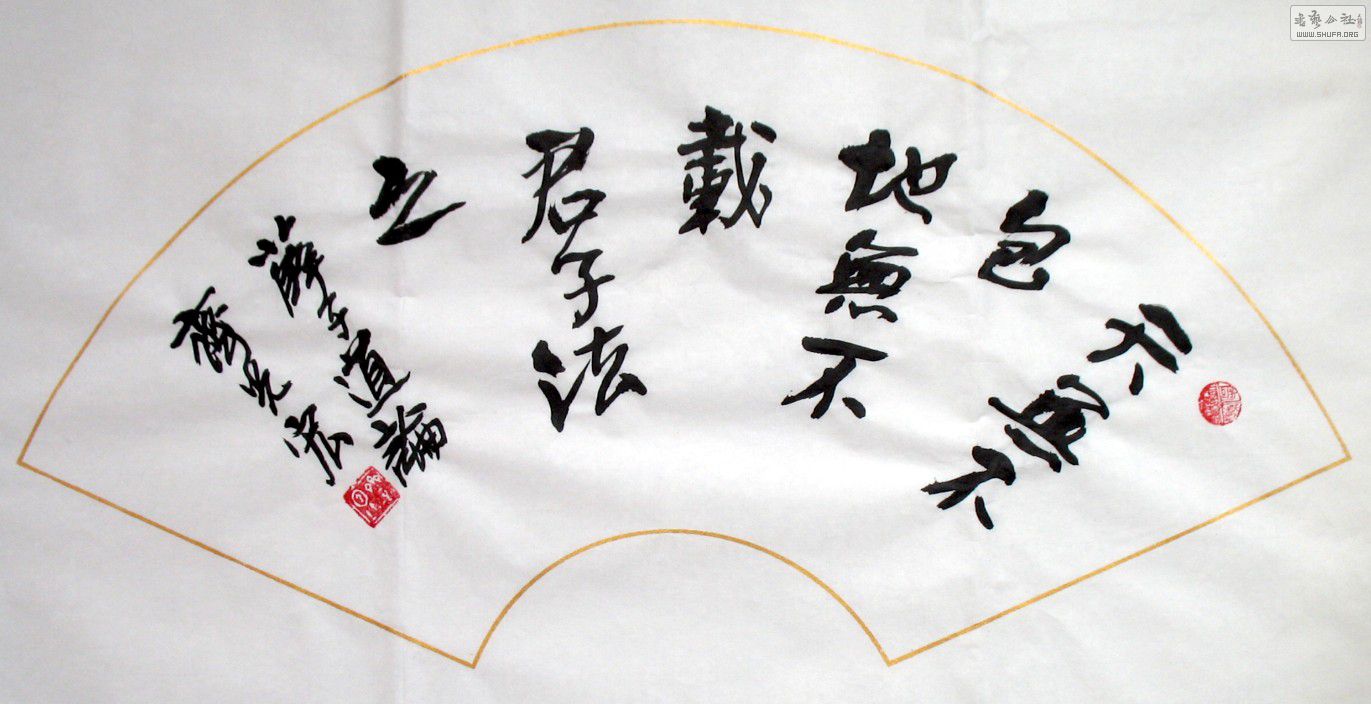 天無不
包
地無不
載
君子法
之
薛子道論
書藝公社
WWW.SHUFA.ORG